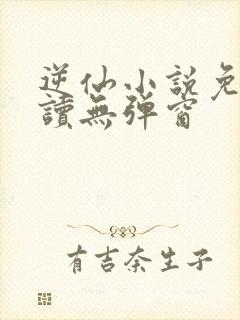 逆仙小說免
讀無彈窗
有吉奈生子